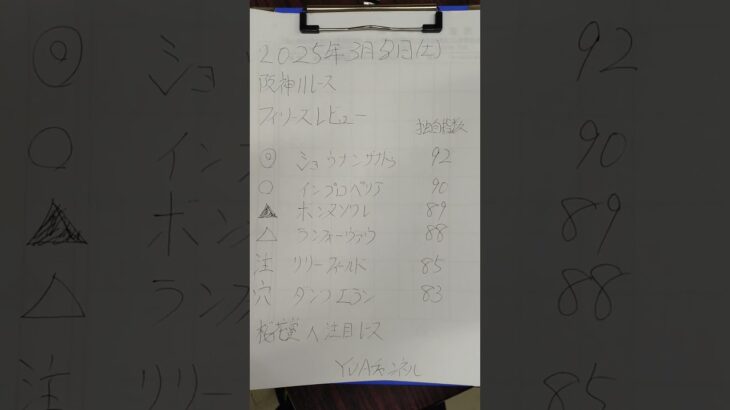 2025年3月8日(土)
阪神11レース
フィリーズレビュー
独自指数
◎ ショウナンザナドゥ 92
○ インプロペリア 90
▲ ボンヌソワレ 89
△ ランフォーヴァウ 88
注 リリーフィールド 85
穴 ダンツエラン 83
桜花賞へ注目レース
YUAチャンネル